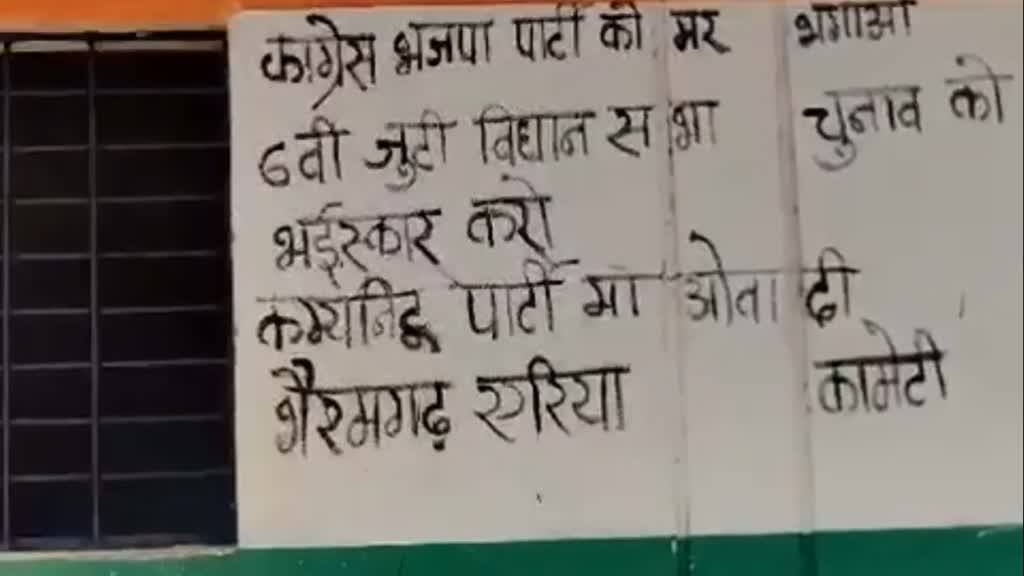 काग्रेस भजपा पार्टी को मर भगाआ
6वी जुटी विधान सभा चुनाव को
भईस्कार करो
कम्यनिह पार्टी मा ओवा दी
भैरमगढ़ एरिया कामेटी